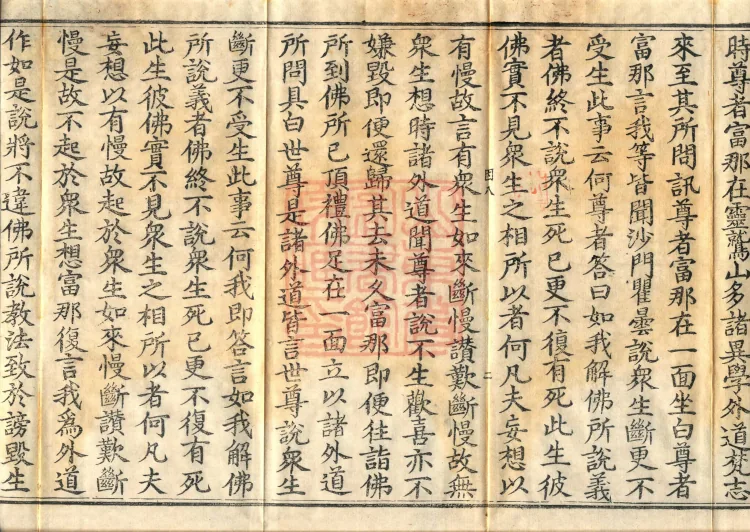 時尊者富那在靈鷲山多諸異學外道梵志
來至其所問訊尊者富那在一面坐白尊者
富那言我等皆聞沙門瞿曇說衆生斷更不
受生此事云何尊者答曰如我解佛所說義
者佛終不說衆生死已更不復有死此生彼
佛實不見衆生之相所以者何凡夫妄想以
因八
二
有慢故言有衆生如來斷慢讚歎斷慢故無
衆生想時諸外道聞尊者說不生歡喜亦不
嫌毀即便還歸其去未久富那即便往詣佛
所到佛所已頂禮佛足在一面立以諸外道
所問具白世尊是諸外道皆言世尊說衆生
斷更不受生此事云何我即答言如我解佛
所說義者佛終不說衆生死已更不復有死
此生彼佛實不見衆生之相所以者何凡夫
妄想以有慢故起於衆生如來慢斷讚歎斷
慢是故不起於衆生想富那復言我爲外道
作如是說將不違佛所說教法致於謗毀生